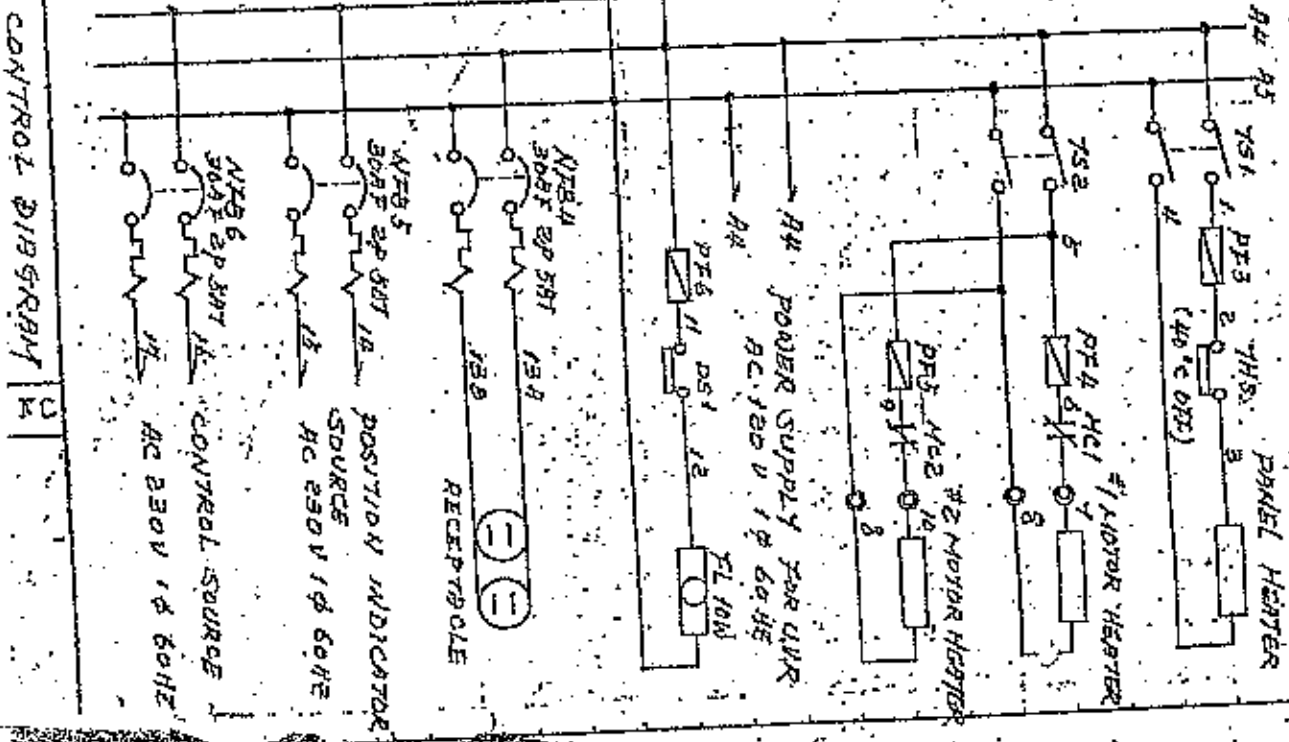 A4 A5
TS1
1
PF3
2
THS
(40°C OFF)
3
PANEL HEATER
4
TS2
5
PF4
6
MC1
7
#1 MOTOR HEATER
8
PF5
9
MC2
10
#2 MOTOR HEATER
8
A4
A4
POWER SUPPLY FOR U.V.R
AC 120V 1φ 60HZ
PF6
11
DS1
12
FL 10W
NFB4
30AF 2P 5AT
13A
13B
RECEPTACLE
NFB5
30AF 2P 5AT
14
15
POSITION INDICATOR
SOURCE
AC 230V 1φ 60HZ
NFB6
30AF 2P 5AT
16
17
CONTROL SOURCE
AC 230V 1φ 60HZ
CONTROL DIAGRAM